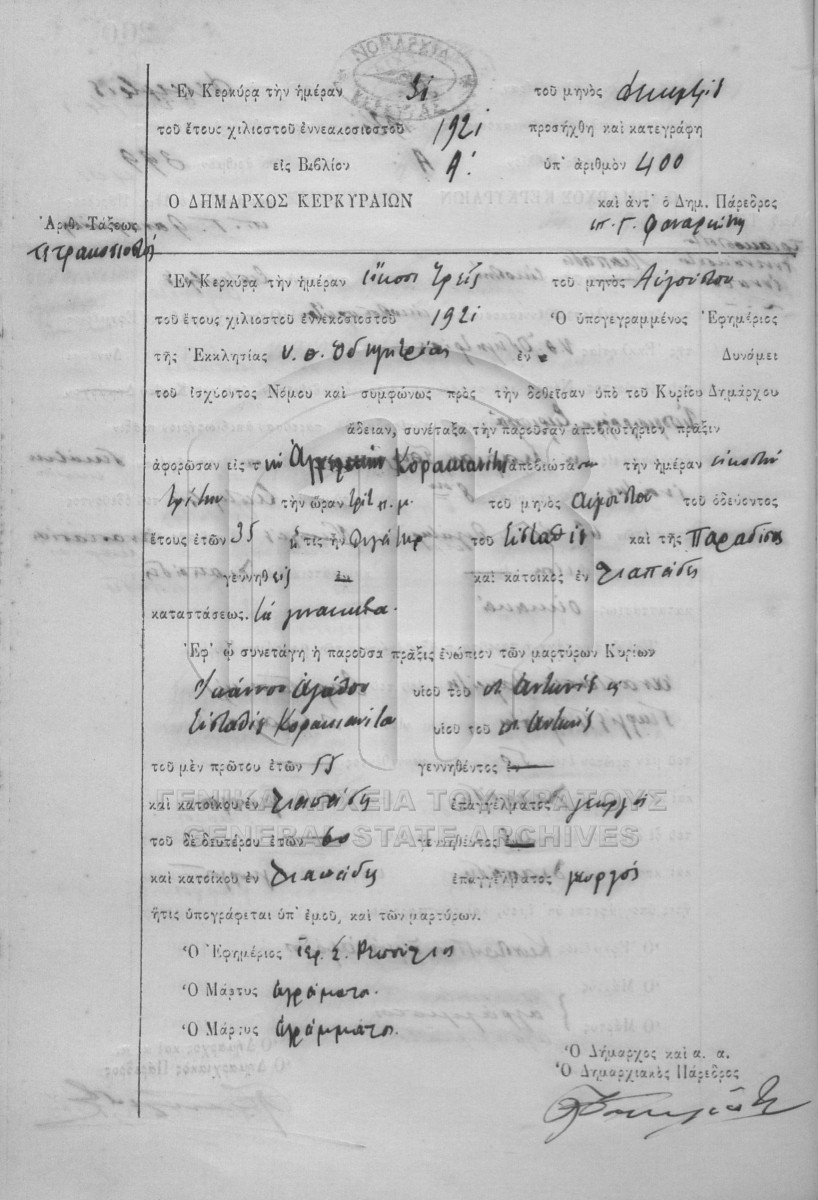 ΝΟΜΑΡΧΙΑ ΚΕΡΚΥΡΑΣ
Ἐν Κερκύρᾳ τὴν ἡμέραν 31 τοῦ μηνὸς
τοῦ ἔτους χιλιοστοῦ ἐννεακοσιοστοῦ 1921 προσήχθη καὶ κατεγράφη
εἰς Βιβλίον Α΄. ὑπ᾽ ἀριθμὸν 400
Ο ΔΗΜΑΡΧΟΣ ΚΕΡΚΥΡΑΙΩΝ καὶ ἀντ᾽ ὁ Δημ. Πάρεδρος
Ἀριθ. Τάξεως
Ἐν Κερκύρᾳ τὴν ἡμέραν εἴκοσι τρεῖς τοῦ μηνὸς Αὐγούστου
τοῦ ἔτους χιλιοστοῦ ἐννεκοσιοστοῦ 1921 Ὁ ὑπογεγραμμένος Ἐφημέριος
τῆς Ἐκκλησίας Υ. Θ. Ὁδηγητρίας ἐν Δυνάμει
τοῦ ἰσχύοντος Νόμου καὶ συμφώνως πρὸς τὴν δοθεῖσαν ὑπὸ τοῦ Κυρίου Δημάρχου
ἄδειαν, συνέταξα τὴν παροῦσαν ἀποβιωτήριον πρᾶξιν
ἀφορῶσαν εἰς τὴν Κορακιανίτη ἀποβιώσασαν τὴν ἡμέραν εἰκοστὴν
τρίτην τὴν ὥραν τρίτ π. μ. τοῦ μηνὸς Αὐγούστου τοῦ ὁδεύοντος
ἔτους ἐτῶν 35 ἥτις ἦν θυγάτηρ τοῦ Εὐσταθίου καὶ τῆς Παραδίσης
γεννηθεῖσ ἐν καὶ κάτοικος ἐν Λιαπάδες
καταστάσεως.
Ἐφ᾽ ᾧ συνετάγη ἡ παροῦσα πρᾶξις ἐνώπιον τῶν μαρτύρων Κυρίων
Ἰωάννου Ἀγάθου υἱοῦ τοῦ π. Ἀντωνίου
Εὐσταθίου Κορακιανίτου υἱοῦ τοῦ π. Ἀντωνίου
τοῦ μὲν πρώτου ἐτῶν 55 γεννηθέντος ἐν
καὶ κατοίκου ἐν Λιαπάδες ἐπαγγέλματος γεωργός
ΓΕΝΙΚΑ ΑΡΧΕΙΑ ΤΟΥ ΚΡΑΤΟΥΣ
GENERAL STATE ARCHIVES
τοῦ δὲ δευτέρου ἐτῶν 60 γεννηθέντος ἐν
καὶ κατοίκου ἐν Λιαπάδες ἐπαγγέλματος γεωργός
ἥτις ὑπογράφεται ὑπ᾽ ἐμοῦ, καὶ τῶν μαρτύρων.
Ὁ Ἐφημέριος Ἱερ. Σ.
Ὁ Μάρτυς ἀγράματο.
Ὁ Μάρτυς ἀγράμματο.
Ὁ Δήμαρχος καὶ α. α.
Ὁ Δημαρχιακὸς Πάρεδρος